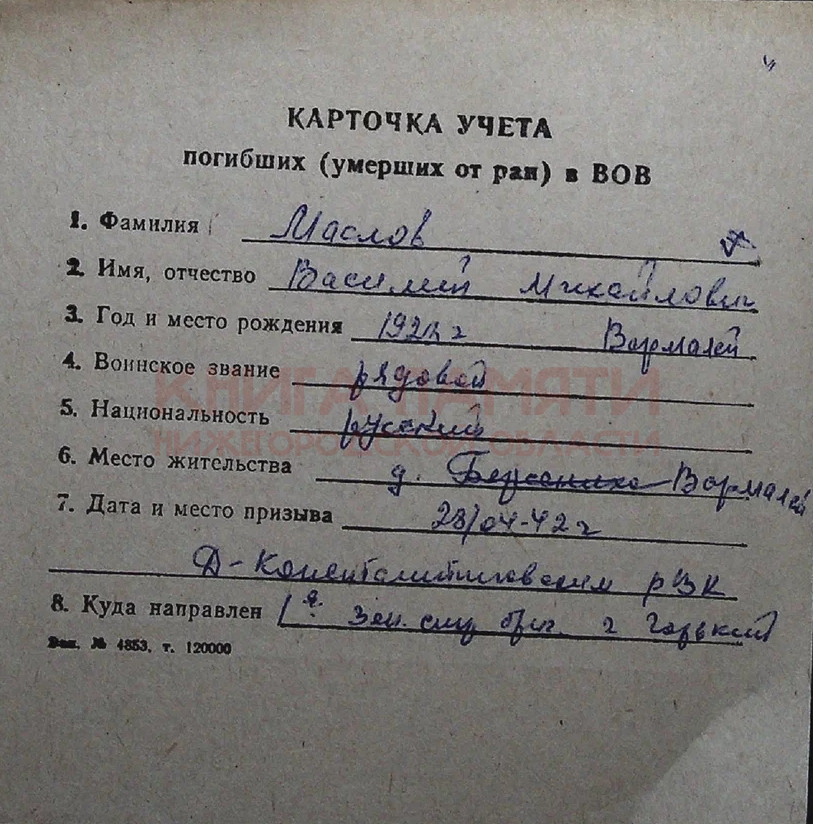 КАРТОЧКА УЧЕТА
погибших (умерших от ран) в ВОВ
1. Фамилия Маслов
2. Имя, отчество Василий Михайлович
3. Год и место рождения Вормалей
4. Воинское звание рядовой
КНИГА ПАМЯТИ
5. Национальность русский
НИЖЕГОРОДСКОЙ ОБЛАСТИ
6. Место жительства д. Вормалей
7. Дата и место призыва 23/04-42 г
Д-Константиновским РВК
8. Куда направлен 1 г Горький
Зак. № 4853, т. 120000